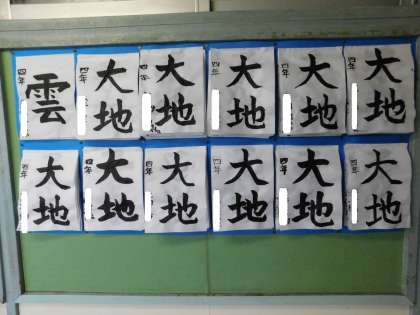 雲
四年
大地
四年
大地
四年
大地
四年
大地
四年
大地
四年
大地
四年
大地
四年
大地
四年
大地
四年
大地
四年
大地
四年